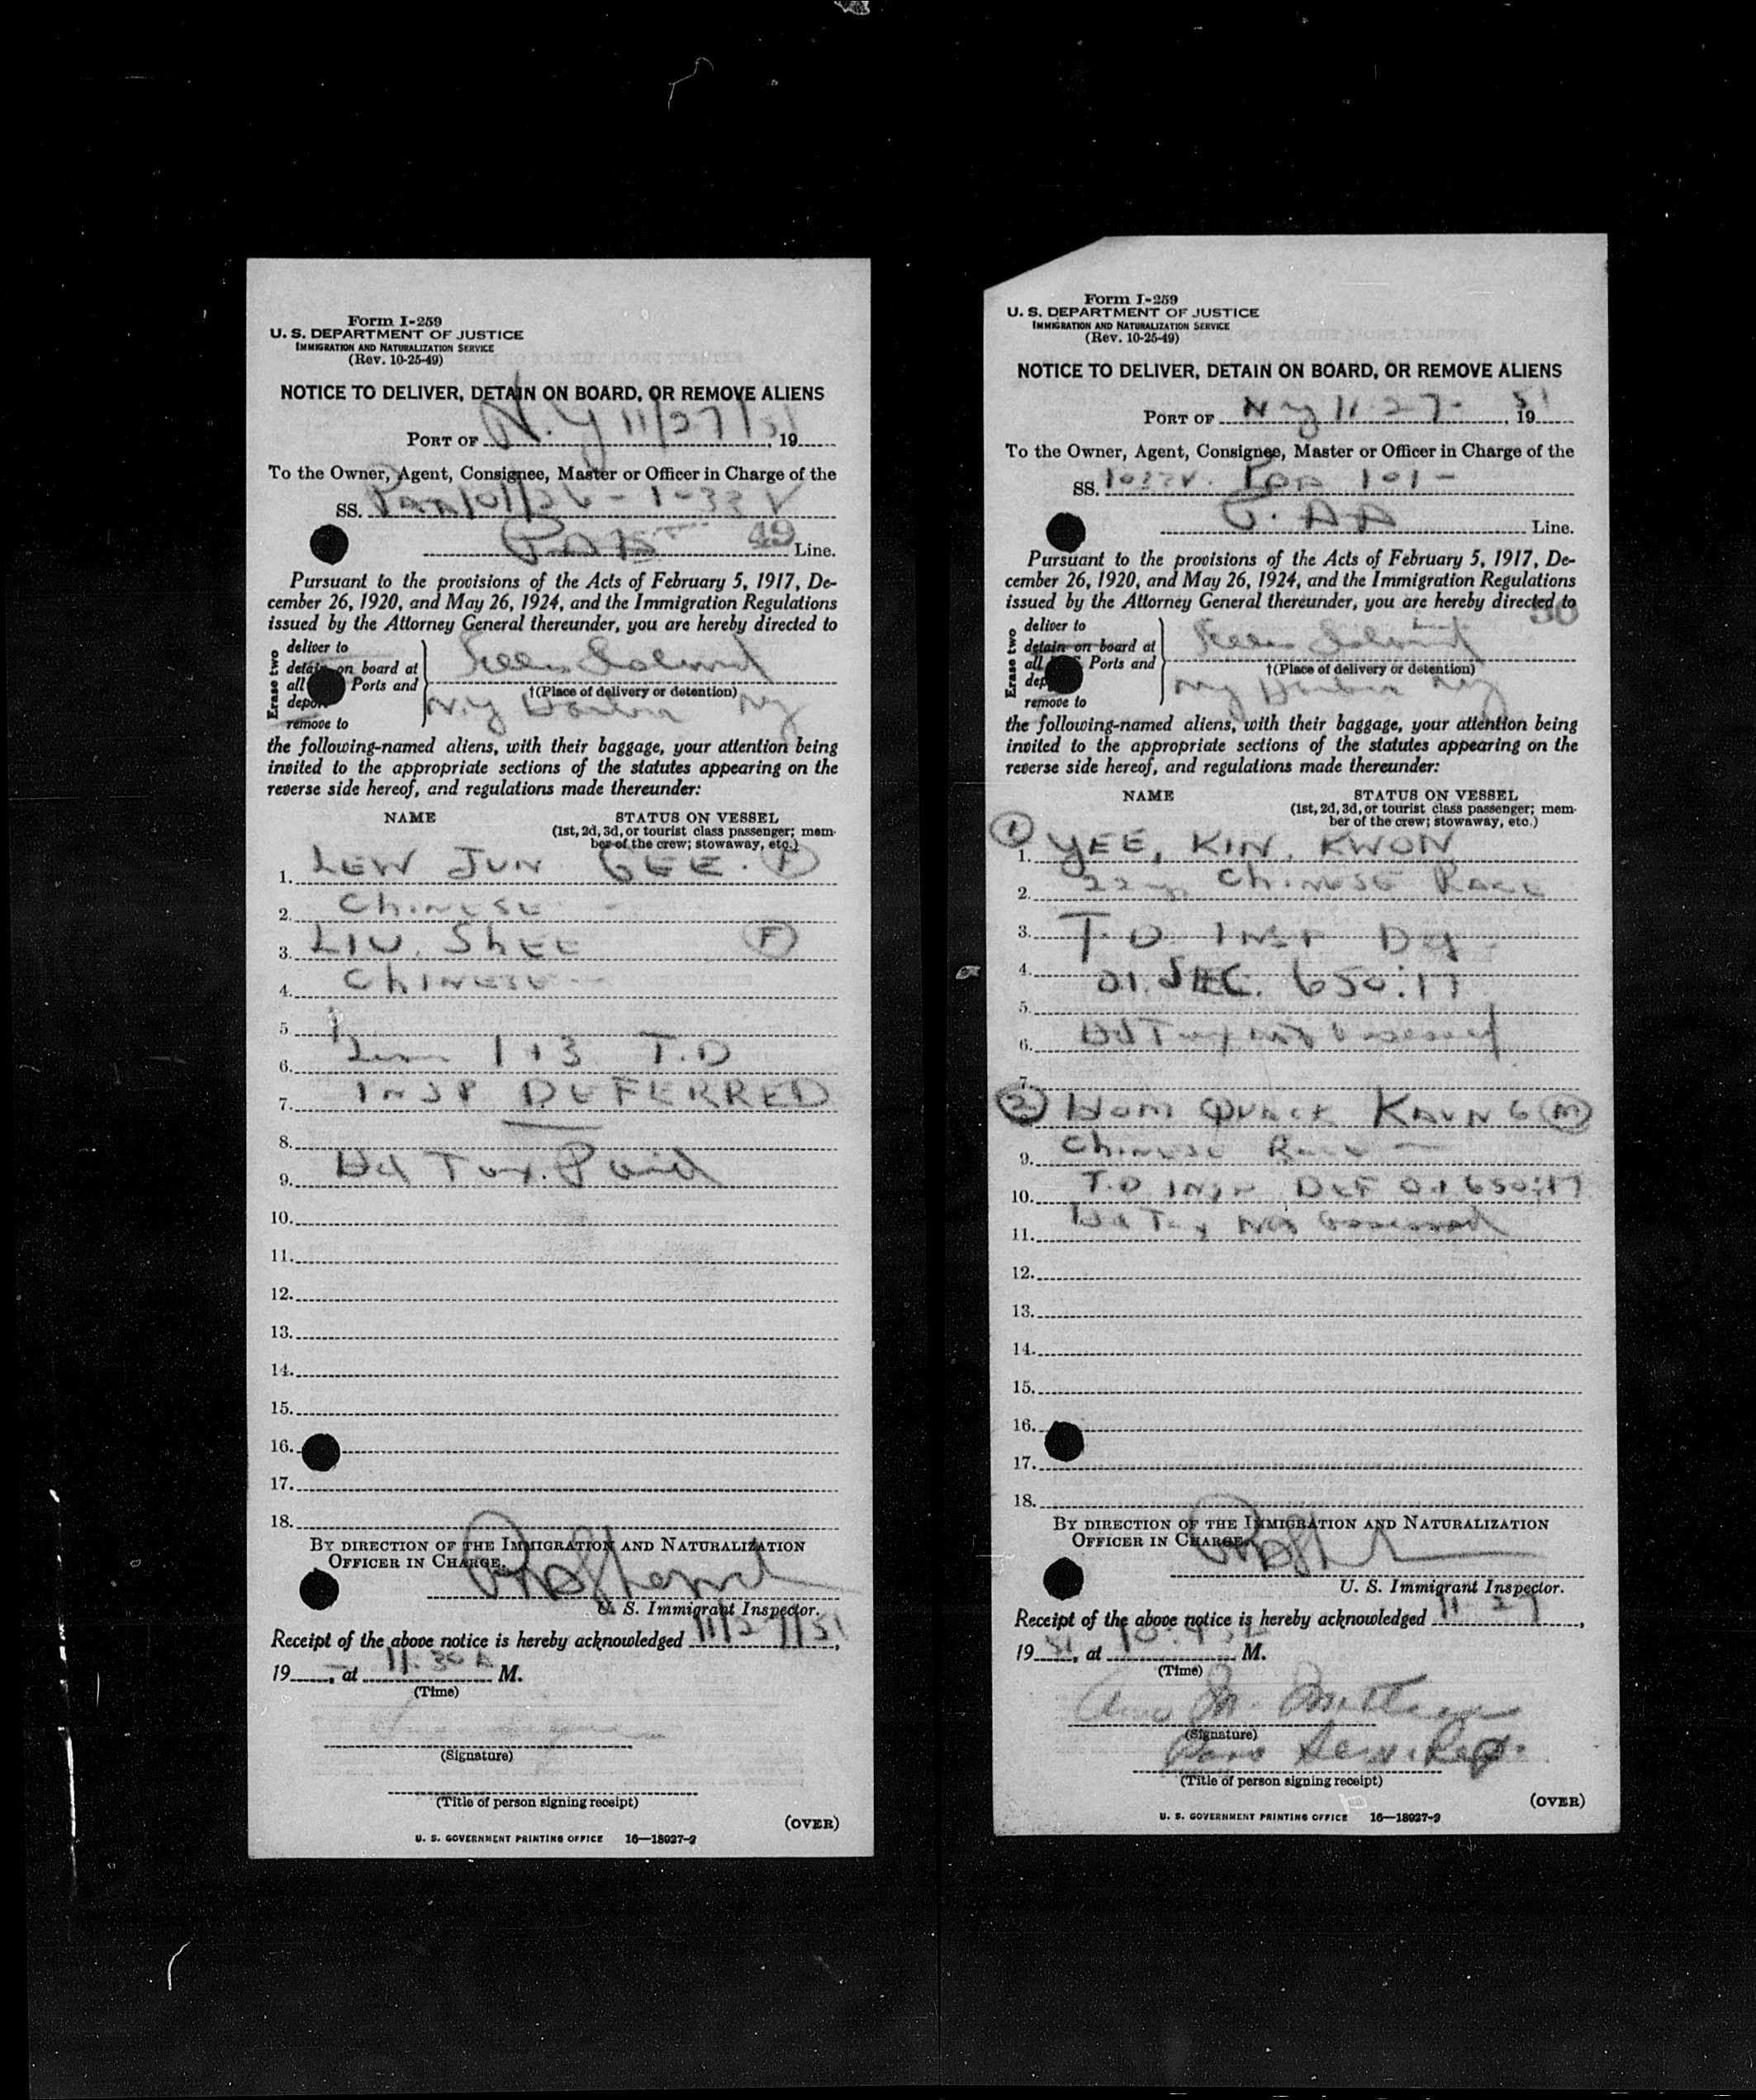 Form I-259
U. S. DEPARTMENT OF JUSTICE
IMMIGRATION AND NATURALIZATION SERVICE
(Rev. 10-25-49)
NOTICE TO DELIVER, DETAIN ON BOARD, OR REMOVE ALIENS
PORT OF N.Y 11/27/51, 19
To the Owner, Agent, Consignee, Master or Officer in Charge of the
SS.
49 Line.
Pursuant to the provisions of the Acts of February 5, 1917, De-
cember 26, 1920, and May 26, 1924, and the Immigration Regulations
issued by the Attorney General thereunder, you are hereby directed to
Erase two
deliver to
detain on board at
all Ports and
remove to
Island
†(Place of delivery or detention)
N.Y Harbor NY
the following-named aliens, with their baggage, your attention being
invited to the appropriate sections of the statutes appearing on the
reverse side hereof, and regulations made thereunder:
NAME STATUS ON VESSEL
(1st, 2d, 3d, or tourist class passenger; mem-
ber of the crew; stowaway, etc.)
1. LEW JUN GEE. F
2. CHINESE -
3. LIU. SHEE F
4. CHINESE -
5.
6. 1+3 T.D
7. INSP DEFERRED
8.
9. Hd Tax. Paid
10.
11.
12.
13.
14.
15.
16.
17.
18.
BY DIRECTION OF THE IMMIGRATION AND NATURALIZATION
OFFICER IN CHARGE.
U. S. Immigrant Inspector.
Receipt of the above notice is hereby acknowledged 11/27/51,
19 , at 11:30 A M.
(Time)
(Signature)
(Title of person signing receipt)
(OVER)
U. S. GOVERNMENT PRINTING OFFICE 16—18027-2
Form I-259
U. S. DEPARTMENT OF JUSTICE
IMMIGRATION AND NATURALIZATION SERVICE
(Rev. 10-25-49)
NOTICE TO DELIVER, DETAIN ON BOARD, OR REMOVE ALIENS
PORT OF NY 11-27-, 1951
To the Owner, Agent, Consignee, Master or Officer in Charge of the
SS. 1033V. PAA 101-
P.AA Line.
Pursuant to the provisions of the Acts of February 5, 1917, De-
cember 26, 1920, and May 26, 1924, and the Immigration Regulations
issued by the Attorney General thereunder, you are hereby directed to
50
Erase two
deliver to
detain on board at
all Ports and
remove to
Island
†(Place of delivery or detention)
NY Harbor NY
the following-named aliens, with their baggage, your attention being
invited to the appropriate sections of the statutes appearing on the
reverse side hereof, and regulations made thereunder:
NAME STATUS ON VESSEL
(1st, 2d, 3d, or tourist class passenger; mem-
ber of the crew; stowaway, etc.)
1
1. YEE, KIN. KWON
2. 22 CHINESE RACE
3. T.D. INSP
4. SEC. 650:17
5.
6. Hd Tax not assessed
7.
2 HOM QUACK KAUNG M
9. Chinese Race -
10. T.D INSP DEF 650:17
11. Hd Tax Not assessed
12.
13.
14.
15.
16.
17.
18.
BY DIRECTION OF THE IMMIGRATION AND NATURALIZATION
OFFICER IN CHARGE.
U. S. Immigrant Inspector.
Receipt of the above notice is hereby acknowledged 11-27,
1951, at M.
(Time)
(Signature)
Pass Serv. Rep.
(Title of person signing receipt)
(OVER)
U. S. GOVERNMENT PRINTING OFFICE 16—18027-2